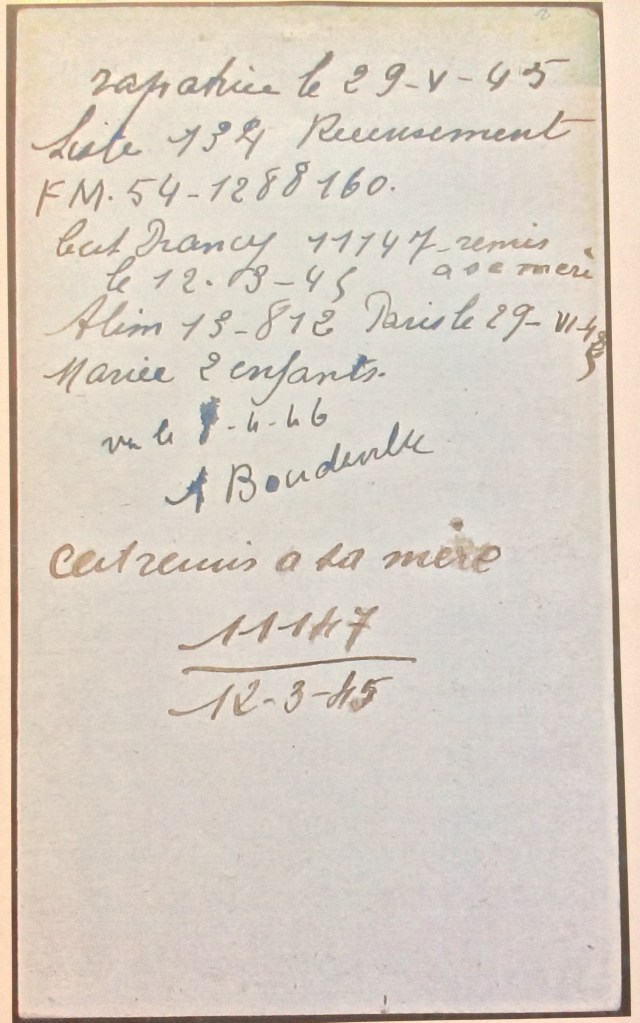 rapatriée le 29-V-45
Liste 134 Recensement
FM. 54-1288160.
Cert Drancy 11147 remis
le 12.03-45 a sa mère
Alim 13-812 Paris le 29-VI-45
Mariée 2 enfants.
vu le -4-46
A Boudeville
Cert remis a sa mère
11147
12-3-45